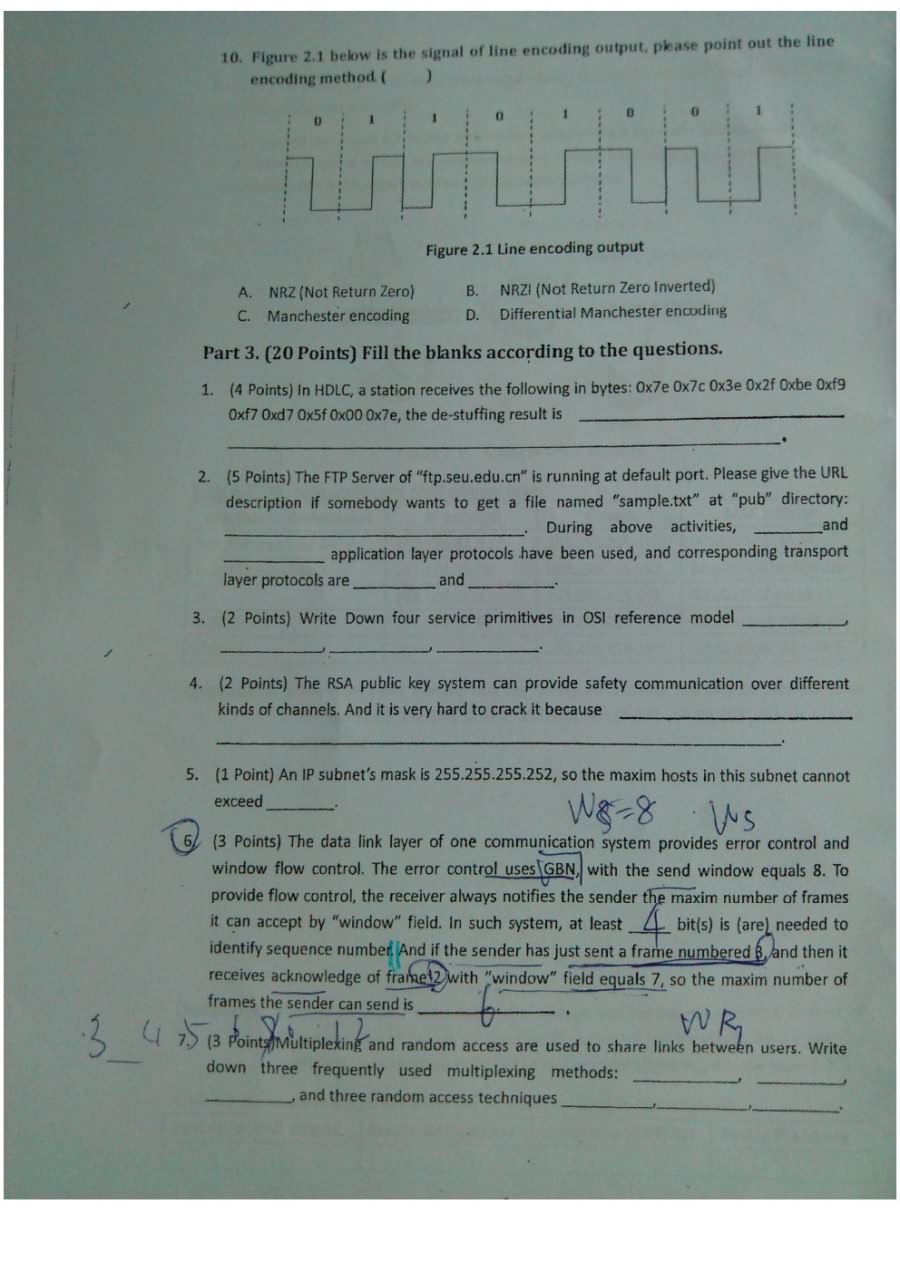 10. Figure 2.1 below is the signal of line encoding output, please point out the line
encoding method ( )
0 1 1 0 1 0 0 1
Figure 2.1 Line encoding output
A. NRZ (Not Return Zero) B. NRZI (Not Return Zero Inverted)
C. Manchester encoding D. Differential Manchester encoding
Part 3. (20 Points) Fill the blanks according to the questions.
1. (4 Points) In HDLC, a station receives the following in bytes: 0x7e 0x7c 0x3e 0x2f 0xbe 0xf9
0xf7 0xd7 0x5f 0x00 0x7e, the de-stuffing result is ____
____.
2. (5 Points) The FTP Server of "ftp.seu.edu.cn" is running at default port. Please give the URL
description if somebody wants to get a file named "sample.txt" at "pub" directory:
____. During above activities, ____and
____ application layer protocols have been used, and corresponding transport
layer protocols are ____ and ____.
3. (2 Points) Write Down four service primitives in OSI reference model ____,
____, ____, ____.
4. (2 Points) The RSA public key system can provide safety communication over different
kinds of channels. And it is very hard to crack it because ____
____.
5. (1 Point) An IP subnet's mask is 255.255.255.252, so the maxim hosts in this subnet cannot
exceed ____.
=8 Ws
6. (3 Points) The data link layer of one communication system provides error control and
window flow control. The error control uses GBN, with the send window equals 8. To
provide flow control, the receiver always notifies the sender the maxim number of frames
it can accept by "window" field. In such system, at least 4 bit(s) is (are) needed to
identify sequence number. And if the sender has just sent a frame numbered 3, and then it
receives acknowledge of frame 2 with "window" field equals 7, so the maxim number of
frames the sender can send is 6.
WR
3 4 5
7. (3 Points) Multiplexing and random access are used to share links between users. Write
down three frequently used multiplexing methods: ____, ____,
____, and three random access techniques ____,____,____.